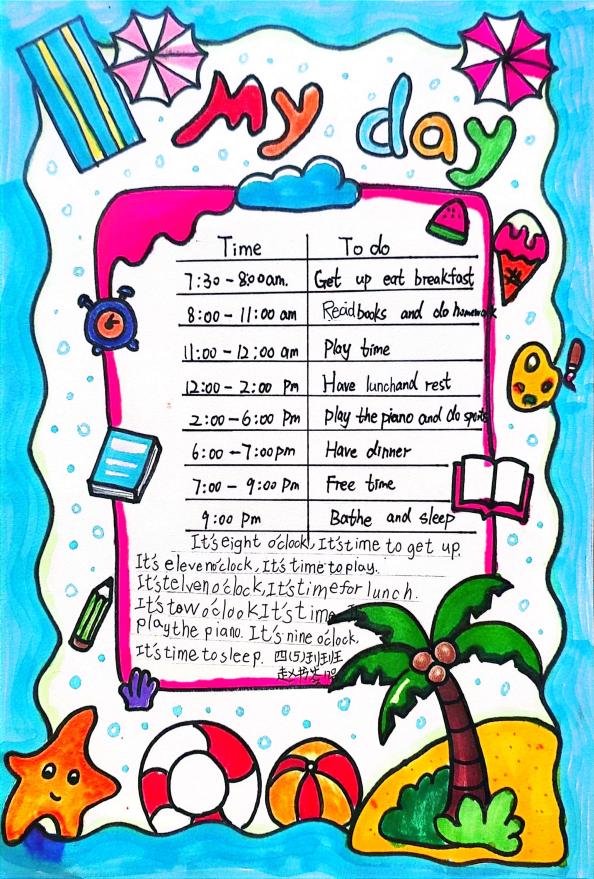 My day
Time To do
7:30 - 8:00am. Get up eat breakfast
8:00 - 11:00 am Read books and do homework
11:00 - 12:00 am Play time
12:00 - 2:00 pm Have lunchand rest
2:00 - 6:00 Pm Play the piano and do sports
6:00 - 7:00pm Have dinner
7:00 - 9:00 Pm Free time
9:00 Pm Bathe and sleep
It's eight o'clock, It's time to get up.
It's eleven o'clock, It's time to play.
It's telven o'clock, It's time for lunch.
It's tow o'clook It's time
play the piano. It's nine o'clock,
It's time to sleep. 四(5)班